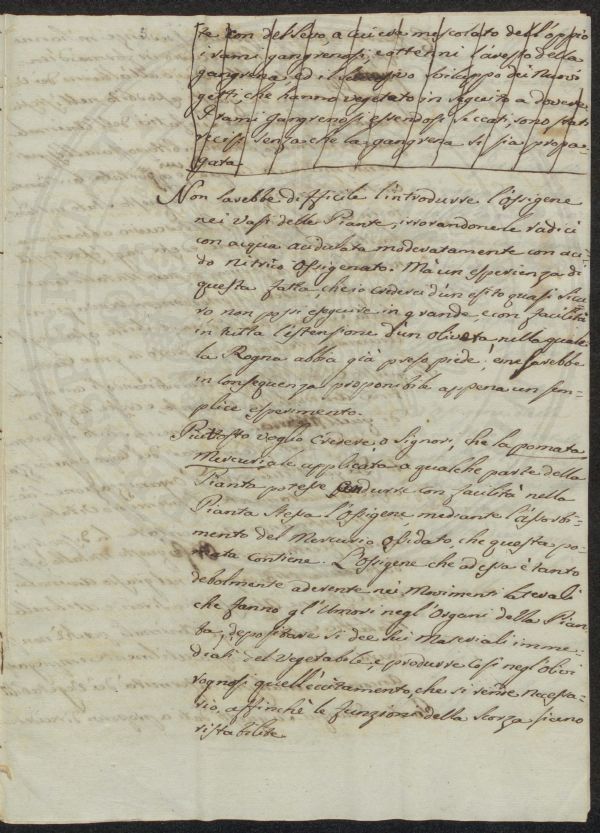 te con del Sevo, a cui era mescolato dell'oppio
i rami gangrenosi, e ottenni l'avesto della
gangrena ed il sviluppo dei nuovi
getti, che hanno vegetato in seguito a dovere.
I rami Gangrenosi essendosi seccati, sono stati
recisi senza che la gangrena si sia propa-
gata.
Non sarebbe difficile l'introdurre l'ossigene
nei Vasi delle Piante, irrorandone le radici
con acqua acidulata moderatamente con aci-
do nitrico ossigenato. Mà un esperienza di
questa fatta, che io crederei d'un esito quasi sicu-
ro non può si eseguire in grande e con facilità
in tutta l'estensione d'un oliveta nella quale
la Rogna abbia già preso piede, e ne sarebbe
in Consequenza proponibile appena un sem-
plice esperimento.
Piuttosto voglio credere o Signori, che la pomata
Mercuriale applicata a qualche parte della
Pianta potesse condurre con facilità nella
Pianta stessa l'ossigene mediante l'assorbi-
mento del Mercurio ossidato che questa po-
mata contiene. L'ossigene che ad essa è tanto
debolmente aderente nei Movimenti laterali
che fanno gl'Umori negl'Organi della Pian-
ta, depositare si dee sui Materiali imme-
diati del Vegetabile, e produrre così negl'Olivi
rognosi quell'eccitamento, che si rende necessa-
rio, affinchè le funzioni della Scorza sieno
ristabilite.